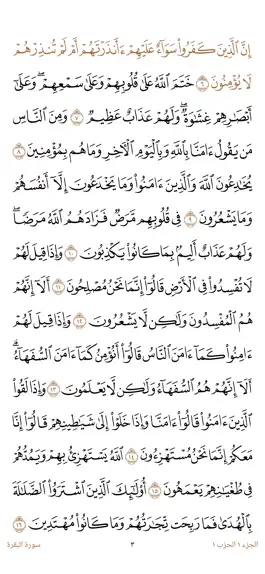 إِنَّ ٱلَّذِينَ كَفَرُوا۟ سَوَآءٌ عَلَيْهِمْ ءَأَنذَرْتَهُمْ أَمْ لَمْ تُنذِرْهُمْ
لَا يُؤْمِنُونَ ٦ خَتَمَ ٱللَّهُ عَلَىٰ قُلُوبِهِمْ وَعَلَىٰ سَمْعِهِمْ ۖ وَعَلَىٰٓ
أَبْصَٰرِهِمْ غِشَٰوَةٌ ۖ وَلَهُمْ عَذَابٌ عَظِيمٌ ٧ وَمِنَ ٱلنَّاسِ
مَن يَقُولُ ءَامَنَّا بِٱللَّهِ وَبِٱلْيَوْمِ ٱلْءَاخِرِ وَمَا هُم بِمُؤْمِنِينَ ٨
يُخَٰدِعُونَ ٱللَّهَ وَٱلَّذِينَ ءَامَنُوا۟ وَمَا يَخْدَعُونَ إِلَّآ أَنفُسَهُمْ
وَمَا يَشْعُرُونَ ٩ فِى قُلُوبِهِم مَّرَضٌ فَزَادَهُمُ ٱللَّهُ مَرَضًا ۖ
وَلَهُمْ عَذَابٌ أَلِيمٌۢ بِمَا كَانُوا۟ يَكْذِبُونَ ١٠ وَإِذَا قِيلَ لَهُمْ
لَا تُفْسِدُوا۟ فِى ٱلْأَرْضِ قَالُوٓا۟ إِنَّمَا نَحْنُ مُصْلِحُونَ ١١ أَلَآ إِنَّهُمْ
هُمُ ٱلْمُفْسِدُونَ وَلَٰكِن لَّا يَشْعُرُونَ ١٢ وَإِذَا قِيلَ لَهُمْ
ءَامِنُوا۟ كَمَآ ءَامَنَ ٱلنَّاسُ قَالُوٓا۟ أَنُؤْمِنُ كَمَآ ءَامَنَ ٱلسُّفَهَآءُ ۗ
أَلَآ إِنَّهُمْ هُمُ ٱلسُّفَهَآءُ وَلَٰكِن لَّا يَعْلَمُونَ ١٣ وَإِذَا لَقُوا۟
ٱلَّذِينَ ءَامَنُوا۟ قَالُوٓا۟ ءَامَنَّا وَإِذَا خَلَوْا۟ إِلَىٰ شَيَٰطِينِهِمْ قَالُوٓا۟ إِنَّا
مَعَكُمْ إِنَّمَا نَحْنُ مُسْتَهْزِءُونَ ١٤ ٱللَّهُ يَسْتَهْزِئُ بِهِمْ وَيَمُدُّهُمْ
فِى طُغْيَٰنِهِمْ يَعْمَهُونَ ١٥ أُو۟لَٰٓئِكَ ٱلَّذِينَ ٱشْتَرَوُا۟ ٱلضَّلَٰلَةَ
بِٱلْهُدَىٰ فَمَا رَبِحَت تِّجَٰرَتُهُمْ وَمَا كَانُوا۟ مُهْتَدِينَ ١٦
سورة البقرة ٣ الجزء ١ الحزب ١